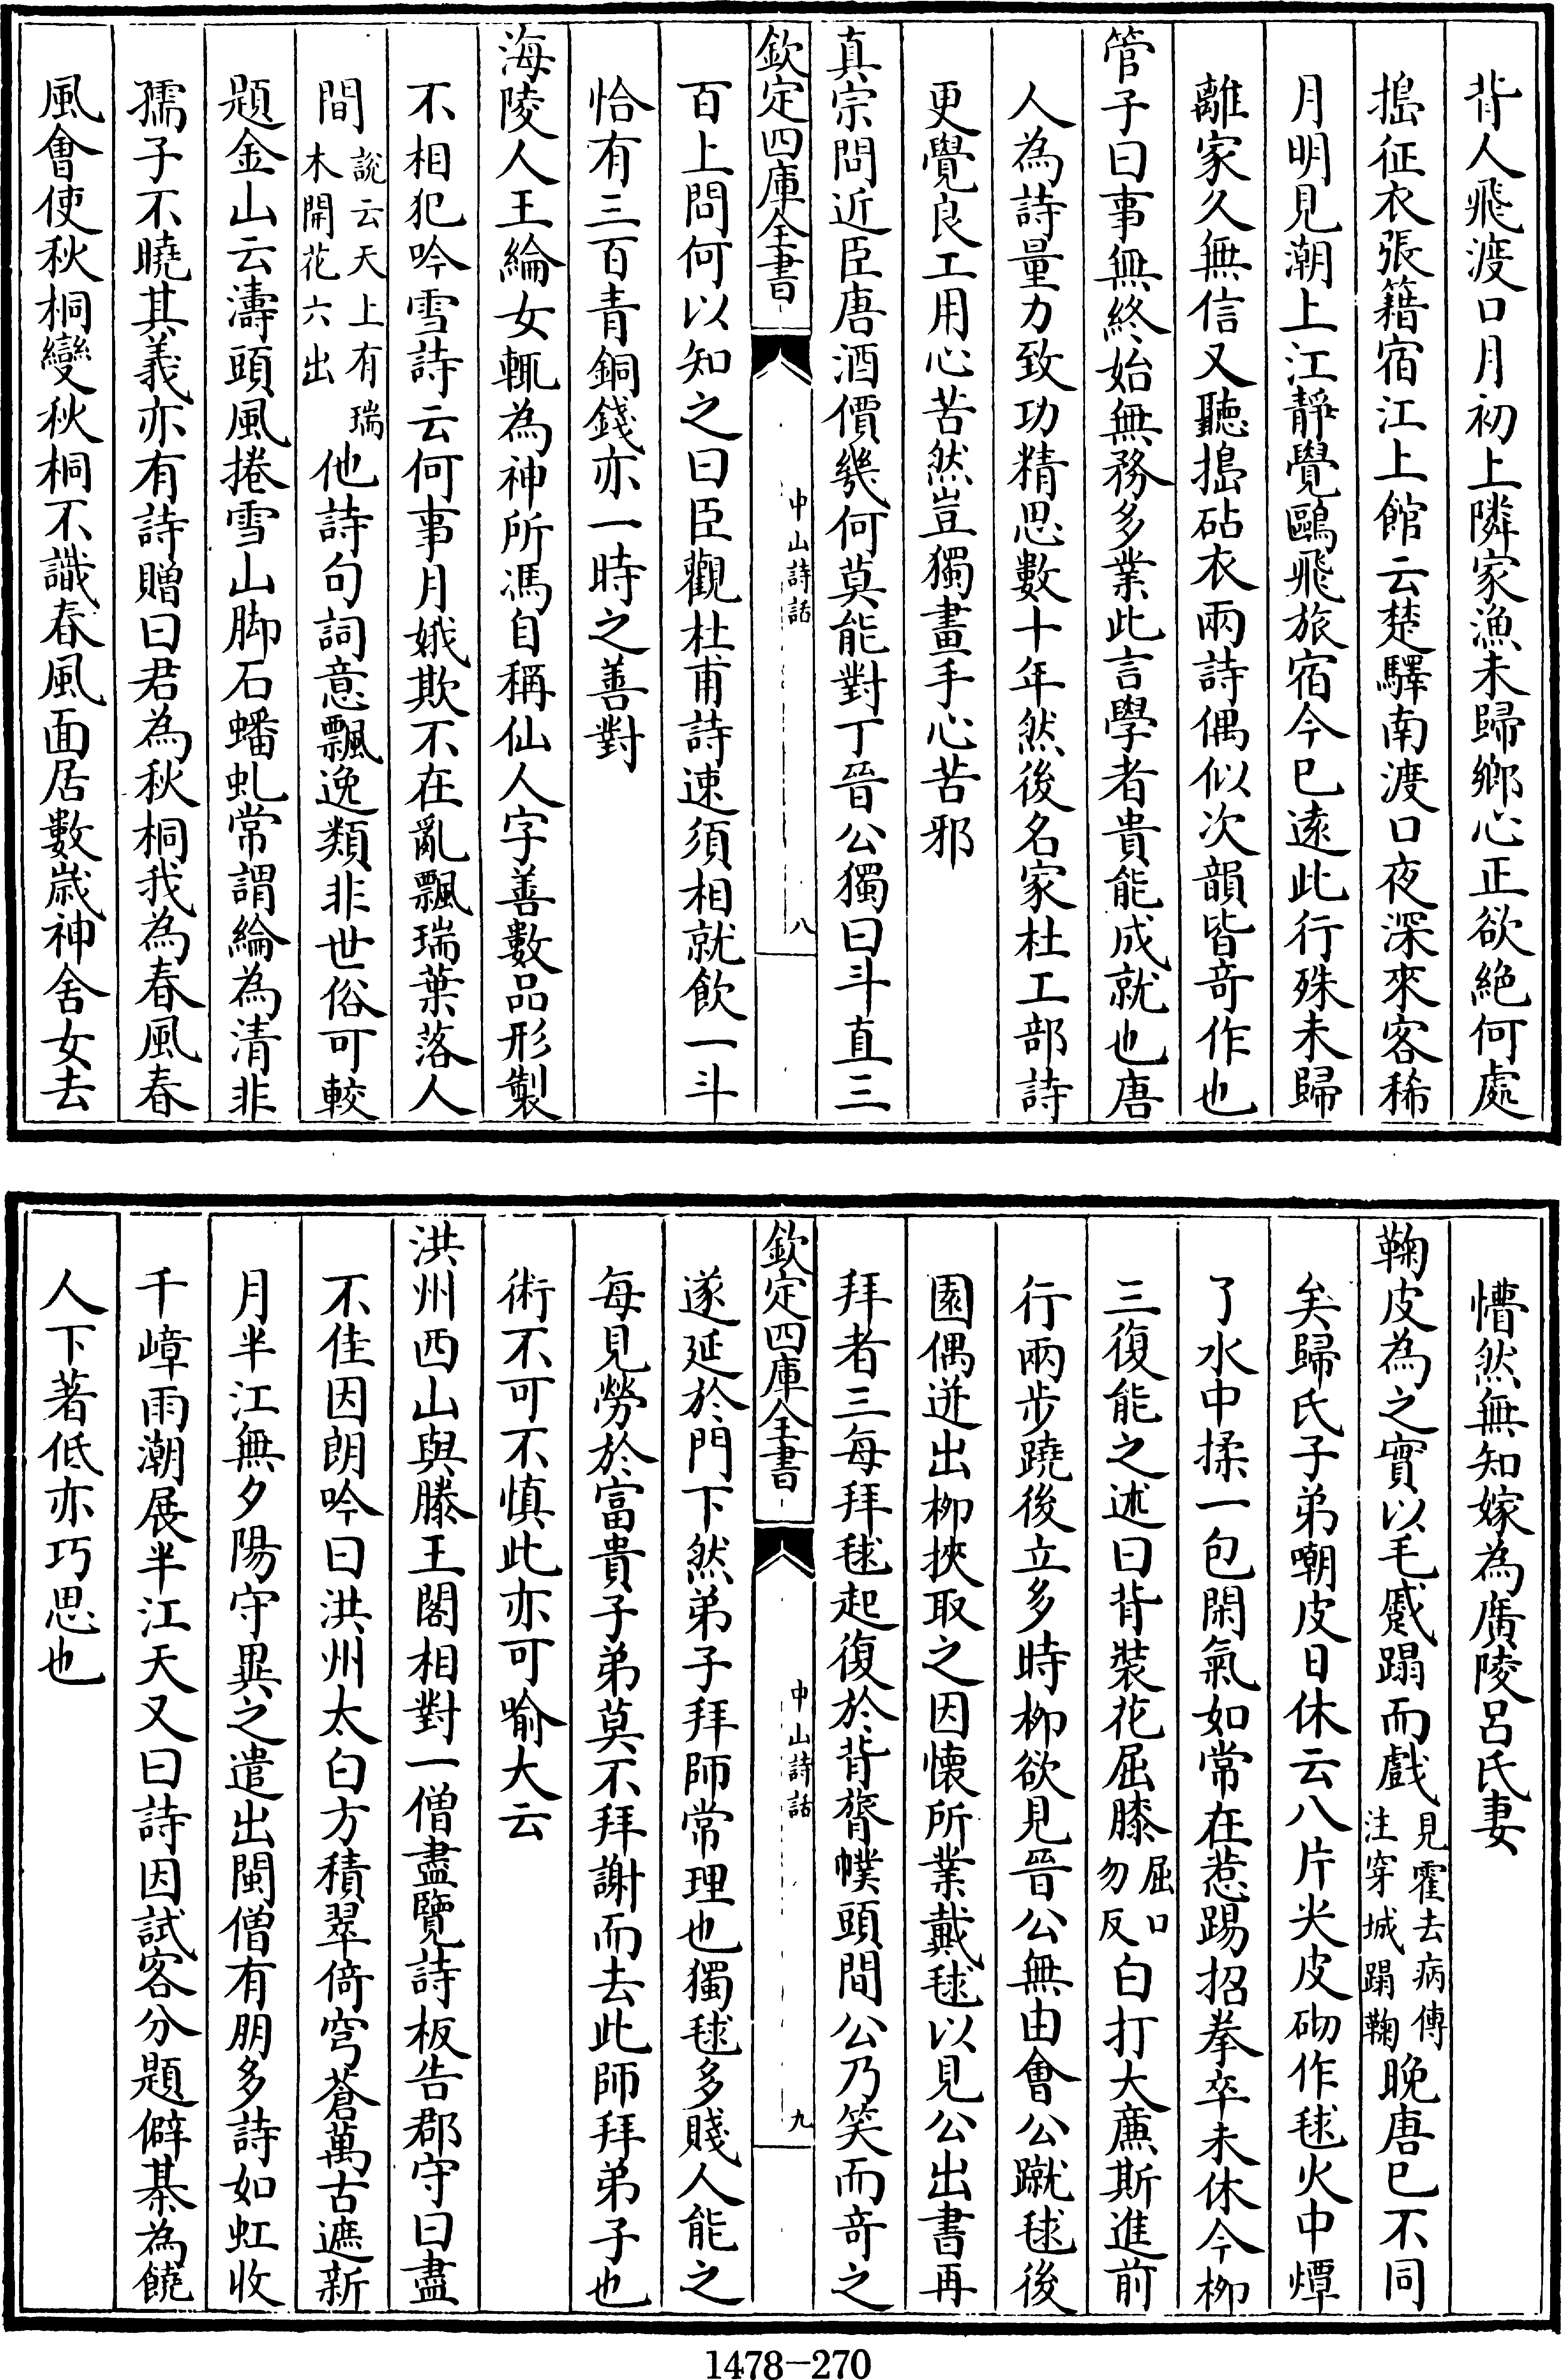 背人飛渡口月初上隣家漁未歸鄉心正欲絶何處
搗征衣張籍宿江上館云楚驛南渡口夜深來客稀
月明見潮上江靜覺鷗飛旅宿今已遠此行殊未歸
離家久無信又聽搗砧衣兩詩偶似次韻皆竒作也
管子曰事無終始無務多業此言學者貴能成就也唐
人為詩量力致功精思數十年然後名家杜工部詩
更覺良工用心苦然豈獨畫手心苦邪
真宗問近臣唐酒價幾何莫能對丁晉公獨曰斗直三
欽定四庫全書
中山詩話
八
百上問何以知之曰臣觀杜甫詩速須相就飲一斗
恰有三百青銅錢亦一時之善對
海陵人王綸女輒為神所馮自稱仙人字善數品形製
不相犯吟雪詩云何事月娥欺不在亂飄瑞葉落人
間說云天上有瑞木開花六出他詩句詞意飄逸類非世俗可較
題金山云濤頭風捲雪山脚石蟠虬常謂綸為清非
孺子不曉其義亦有詩贈曰君為秋桐我為春風春
風會使秋桐變秋桐不識春風面居數歲神舍女去
懵然無知嫁為廣陵呂氏妻
鞠皮為之實以毛蹙蹋而戲見霍去病傳注穿城蹋鞠晚唐已不同
矣歸氏子弟嘲皮日休云八片尖皮砌作毬火中燂
了水中揉一包閑氣如常在惹踢招拳卒未休今栁
三復能之述曰背裝花屈膝屈口勿反白打大㢘斯進前
行兩步蹺後立多時栁欲見晉公無由會公蹴毬後
園偶迸出栁挾取之因懷所業戴毬以見公出書再
拜者三每拜毬起復於背膂幞頭間公乃笑而竒之
欽定四庫全書
中山詩話
九
遂延於門下然弟子拜師常理也獨毬多賤人能之
每見勞於富貴子弟莫不拜謝而去此師拜弟子也
術不可不慎此亦可喻大云
洪州西山與滕王閣相對一僧盡覽詩板告郡守曰盡
不佳因朗吟曰洪州太白方積翠倚穹蒼萬古遮新
月半江無夕陽守異之遣出閩僧有朋多詩如虹收
千嶂雨潮展半江天又曰詩因試客分題僻棊為饒
人下著低亦巧思也
1478—270